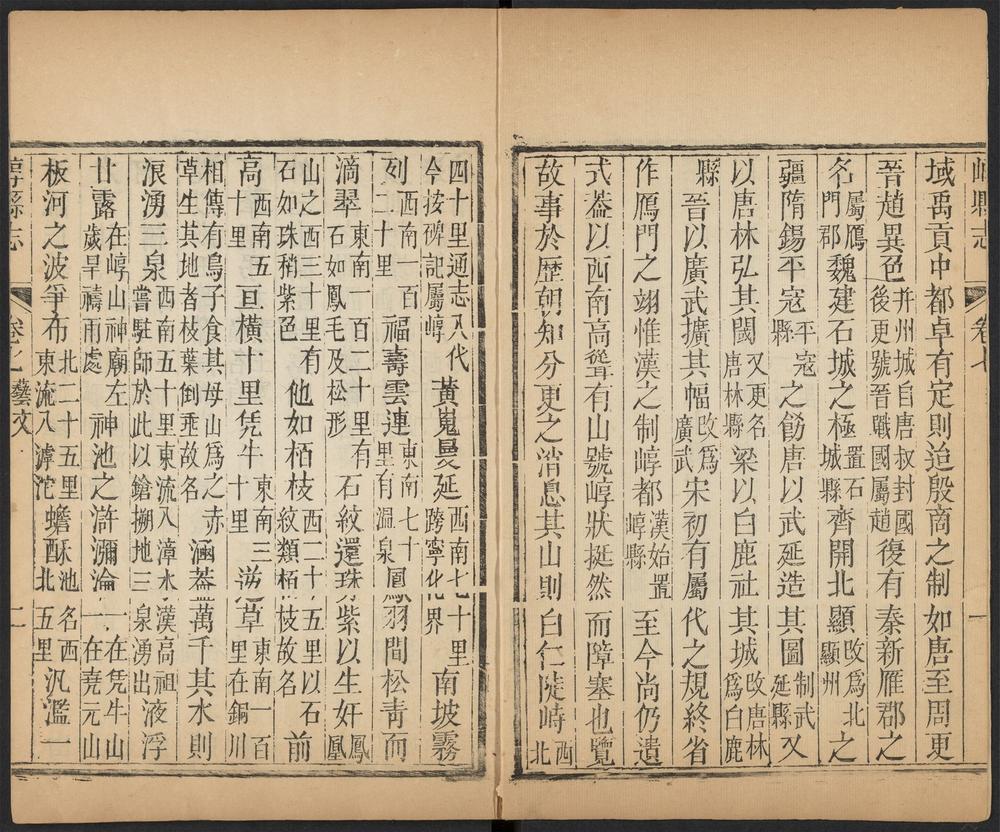 崞縣志 卷七 一
域禹貢中都卓有定則迨殷商之制如唐至周更
晉趙異邑并州城自唐叔封國後更號晉戰國屬趙復有秦新雁郡之
名屬鴈門郡魏建石城之極置石城縣齊開北顯改為北顯州之
疆隋錫平寇平寇縣之飭唐以武延造其圖制武延縣又
以唐林弘其閾又更名唐林縣梁以白鹿社其城改唐林為白鹿
縣晉以廣武擴其幅改為廣武宋初有屬代之規終省
作鴈門之翊惟漢之制崞都漢始置崞縣至今尚仍遺
式蓋以西南高聳有山號崞狀挺然而障塞也覽
故事於歷朝知分更之消息其山則白仁陡峙西北
四十里通志入代今按碑記屬崞黃嵬曼延西南七十里跨寧化界南坡霧
列西南一百二十里福壽雲連東南七十里有溫泉鳳羽間松青而
滴翠東南一百二十里有石如鳳毛及松形石紋還珠紫以生奸鳳凰
山之西三十里有石如珠稍紫色他如栢枝西二十五里以石紋類栢枝故名前
高西南五十里亘橫十里凭牛東南三十里草東南一百里在銅川
相傳有烏子食其母山為之赤草生其地者枝葉倒垂故名涵蓋萬千其水則
浪湧三泉西南五十里東流入漳水漢高祖嘗駐師於此以鎗搠地三泉湧出液浮
甘露在崞山神廟左歲旱禱雨處神池之滸瀰淪一在凭牛山一在堯元山
板河之波爭布北二十五里東流入滹沱蟾酥池名西北五里汎濫一
崞縣志 卷七 藝文 二